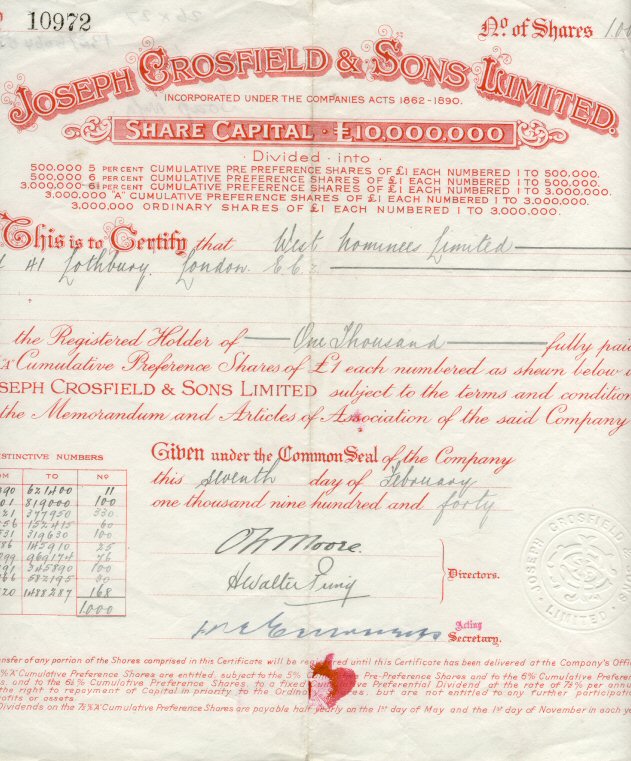 10972
Nº. of Shares 100
JOSEPH CROSFIELD & SONS LIMITED.
INCORPORATED UNDER THE COMPANIES ACTS 1862-1890.
SHARE CAPITAL · £10,000,000
· Divided · into ·
500,000 5 PER CENT CUMULATIVE PRE PREFERENCE SHARES OF £1 EACH NUMBERED 1 TO 500,000.
500,000 6 PER CENT CUMULATIVE PREFERENCE SHARES OF £1 EACH NUMBERED 1 TO 500,000.
3,000,000 6½ PER CENT CUMULATIVE PREFERENCE SHARES OF £1 EACH NUMBERED 1 TO 3,000,000.
3,000,000 "A" CUMULATIVE PREFERENCE SHARES OF £1 EACH NUMBERED 1 TO 3,000,000.
3,000,000 ORDINARY SHARES OF £1 EACH NUMBERED 1 TO 3,000,000.
This is to Certify that West Nominees Limited
41 Lothbury London. E.C.2
the Registered Holder of One Thousand fully paid
"A" Cumulative Preference Shares of £1 each numbered as shewn below
OSEPH CROSFIELD & SONS LIMITED subject to the terms and condition
the Memorandum and Articles of Association of the said Company
Given under the Common Seal of the Company
this seventh day of February
one thousand nine hundred and forty
ISTINCTIVE NUMBERS
OM TO Nº
390 621400 11
01 819000 100
21 377950 330
56 152415 60
531 319630 100
86 145910 25
099 969174 76
91 345890 100
66 582195 30
20 1488287 168
1000
Directors.
Acting
Secretary.
JOSEPH CROSFIELD & SONS LIMITED
nsfer of any portion of the Shares comprised in this Certificate will be registered until this Certificate has been delivered at the Company's Offi
"A" Cumulative Preference Shares are entitled, subject to the 5% Pre-Preference Shares and to the 6% Cumulative Prefere
s. and to the 6½% Cumulative Preference Shares, to a fixed Preferential Dividend at the rate of 7½% per annu
the right to repayment of Capital in priority to the Ordin es, but are not entitled to any further participatio
ofits or assets.
Dividends on the 7½% "A" Cumulative Preference Shares are payable half yearly on the 1st day of May and the 1st day of November in each ye